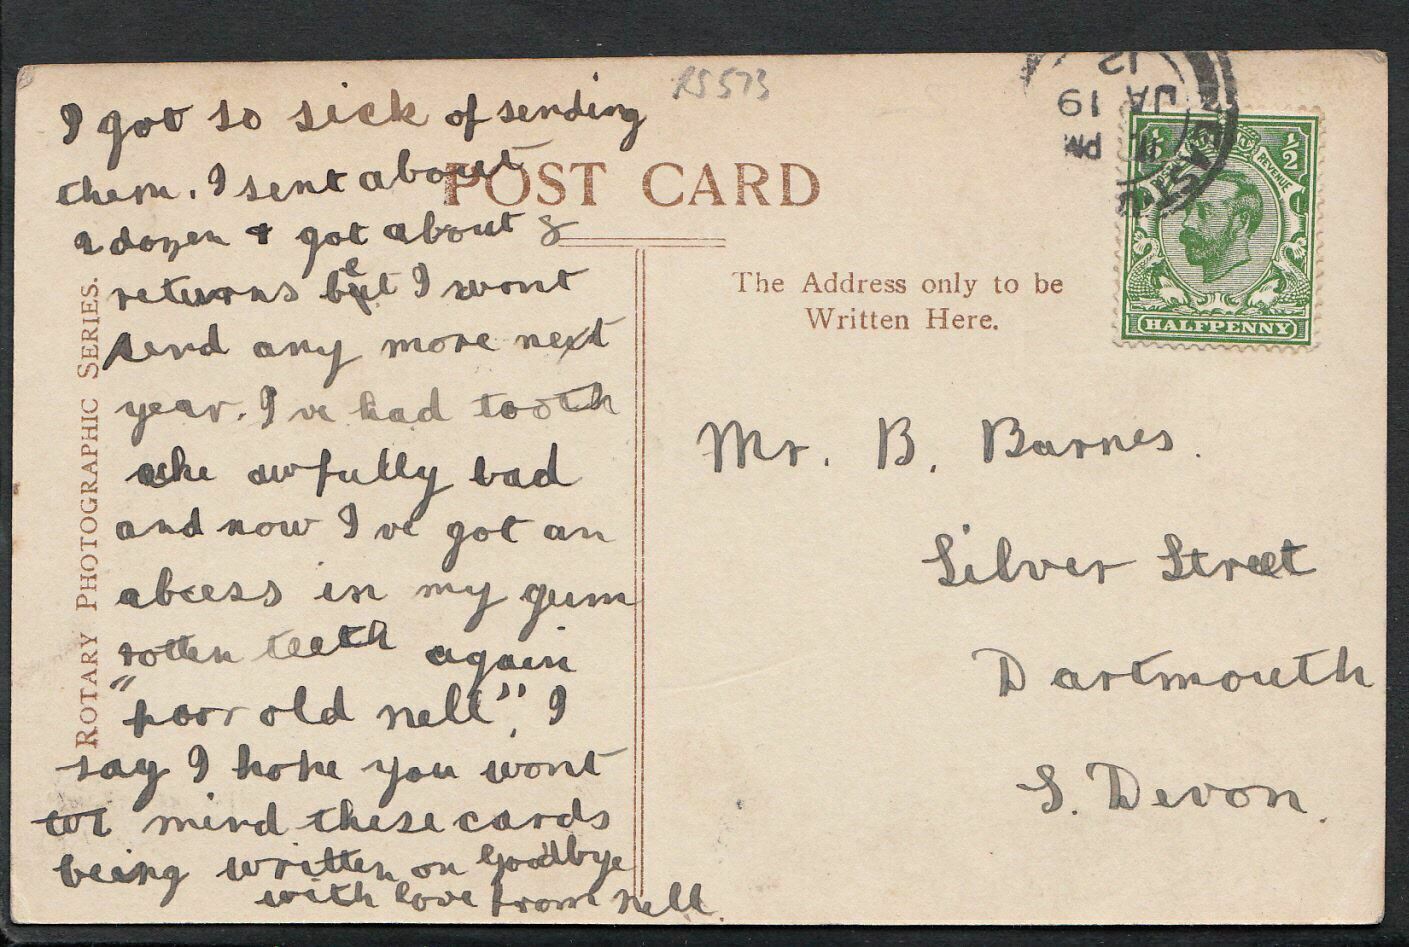 RS 573
I got so sick of sending
them. I sent about
a dozen & got about 8
returns bet I wont
send any more next
year. I've had tooth
ache awfully bad
and now I've got an
abcess in my gum
rotten teeth again
"poor old nell", I
say I hope you wont
mind these cards
being written on Goodbye
with love from nell.
ROTARY PHOTOGRAPHIC SERIES.
POST CARD
The Address only to be
Written Here.
Mr. B. Barnes.
Silver Street
Dartmouth
S. Devon.
PM
19
JA
12
POSTAGE
REVENUE
½
½
HALFPENNY